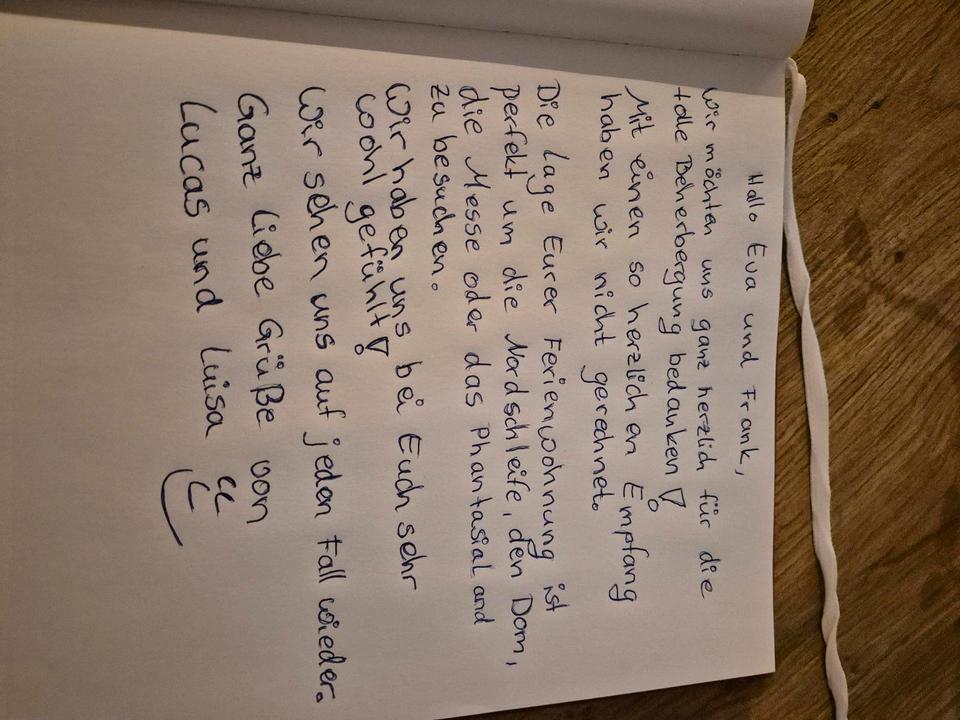 Hallo Eva und Frank,
wir möchten uns ganz herzlich für die
tolle Beherbergung bedanken!
Mit einen so herzlichen Empfang
haben wir nicht gerechnet.
Die Lage Eurer Ferienwohnung ist
perfekt um die Nordschleife, den Dom,
die Messe oder das Phantasialand
zu besuchen.
Wir haben uns bei Euch sehr
wohl gefühlt!
Wir sehen uns auf jeden Fall wieder.
Ganz Liebe Grüße von
Lucas und Luisa